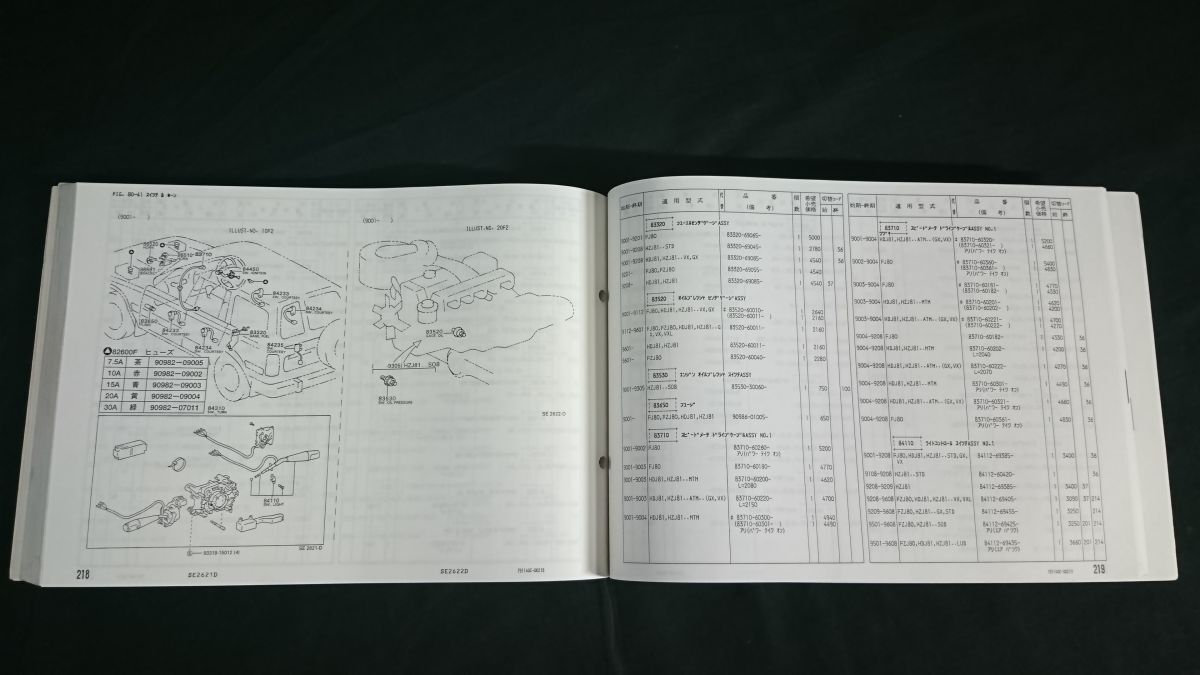 FIG. 80-41 スイッチ & ホーン
(9001- )
ILLUST-NO. 1OF2
(9001- )
ILLUST-NO. 2OF2
86520
86510
83710
84450
SW. IGNITION
84233
SW. COURTESY
84234
SW. COURTESY
84233
SW. COURTESY
84234
SW. COURTESY
83320
84235
SW. COURTESY
82600F ヒューズ
7.5A 茶 90982-09005
10A 赤 90982-09002
15A 青 90982-09003
20A 黄 90982-09004
30A 緑 90982-07011
84310
SW. TURN
84110
SW. LIGHT
93319-15012 (4)
SE 2621-D
83520
GAGE OIL
-9305(HZJ81..SOB
83530
SW. OIL PRESSURE
SE 2622-D
218
SE2621D
SE2622D
適用型式
品番
(備考)
個数
希望小売価格
切替コード
始 終
83320 フューエルセンダゲージASSY
9001-9201 FJ80 83320-69065- 1 5000
9001-9208 HZJ81..STD 83320-69045- 1 2780 36
9001-9208 HDJ81,HZJ81..VX,GX 83320-69085- 1 4540 36
9201- FJ80,FZJ80 83320-69055- 1 4540
9208- HDJ81,HZJ81 83320-69085- 1 4540 37
83520 オイルプレッシャ センダゲージASSY
9001-0112 FJ80,HDJ81,HZJ81..VX,GX ‡ 83520-60010- 1 2640
(83520-60011- ) 2160
9112-9601 FJ80,FZJ80,HDJ81,HZJ81..GX,VX,VXL 83520-60011- 1 2160
9601- HDJ81,HZJ81 83520-60011- 1 2160
9601- FZJ80 83520-60040- 2280
83530 エンジン オイルプレッシャ スイッチASSY
9001-9305 HZJ81..SOB 83530-30060- 1 750 100
83650 フュージ
9001- FJ80,FZJ80,HDJ81,HZJ81 90986-01005- 1 650
83710 スピードメータ ドライブケーブルASSY NO.1
9001-9002 FJ80 83710-60260- 1 5200
アリ(パワー テイク オフ)
9001-9003 FJ80 83710-60190- 1 4770
9001-9003 HDJ81,HZJ81..MTM 83710-60200- 1 4620
L=2080
9001-9003 HDJ81,HZJ81..ATM..(GX,VX) 83710-60220- 1 4700
L=2150
9001-9004 HDJ81,HZJ81..MTM ‡ 83710-60300- 1 4940
(83710-60301- ) 4490
アリ(パワー テイク オフ)
始期-終期
適用型式
品番
(備考)
個数
希望小売価格
切替コード
始 終
83710 スピードメータ ドライブケーブルASSY NO.1
9001-9004 HDJ81,HZJ81..ATM..(GX,VX) ‡ 83710-60320- 1 5200
(83710-60321- ) 4660
アリ(パワー テイク オフ)
9002-9004 FJ80 ‡ 83710-60360- 1 5400
(83710-60361- ) 4830
アリ(パワー テイク オフ)
9003-9004 FJ80 ‡ 83710-60181- 1 4770
(83710-60182- ) 4330
9003-9004 HDJ81,HZJ81..MTM ‡ 83710-60201- 1 4620
(83710-60202- ) 4200
9003-9004 HDJ81,HZJ81..ATM..(GX,VX) ‡ 83710-60221- 1 4700
(83710-60222- ) 4270
9004-9208 FJ80 83710-60182- 1 4330 36
9004-9208 HDJ81,HZJ81..MTM 83710-60202- 1 4200 36
L=2040
9004-9208 HDJ81,HZJ81..ATM..(GX,VX) 83710-60222- 1 4270 36
L=2070
9004-9208 HDJ81,HZJ81..MTM 83710-60301- 1 4490 36
アリ(パワー テイク オフ)
9004-9208 HDJ81,HZJ81..ATM..(GX,VX) 83710-60321- 1 4660 36
アリ(パワー テイク オフ)
9004-9208 FJ80 83710-60361- 1 4830 36
アリ(パワー テイク オフ)
84110 ライトコントロール スイッチASSY NO.1
9001-9208 FJ80,HDJ81,HZJ81..STD,GX,VX 84112-69385- 1 3400 36
9108-9208 HZJ81..STD 84112-60420- 1 36
9208-9209 HZJ81 84112-69385- 1 3400 37
9208-9608 FZJ80,HDJ81,HZJ81..VX,VXL 84112-69405- 1 3090 37 214
9209-9608 FZJ80,HZJ81..GX,STD 84112-69455- 1 3250 214
9501-9608 FZJ80,HDJ81,HZJ81..SOB 84112-69425- 1 3250 201 214
アリ(エア バッグ)
9501-9608 FZJ80,HDJ81,HZJ81..LUB 84112-69435- 1 3660 201 214
アリ(エア バッグ)
219